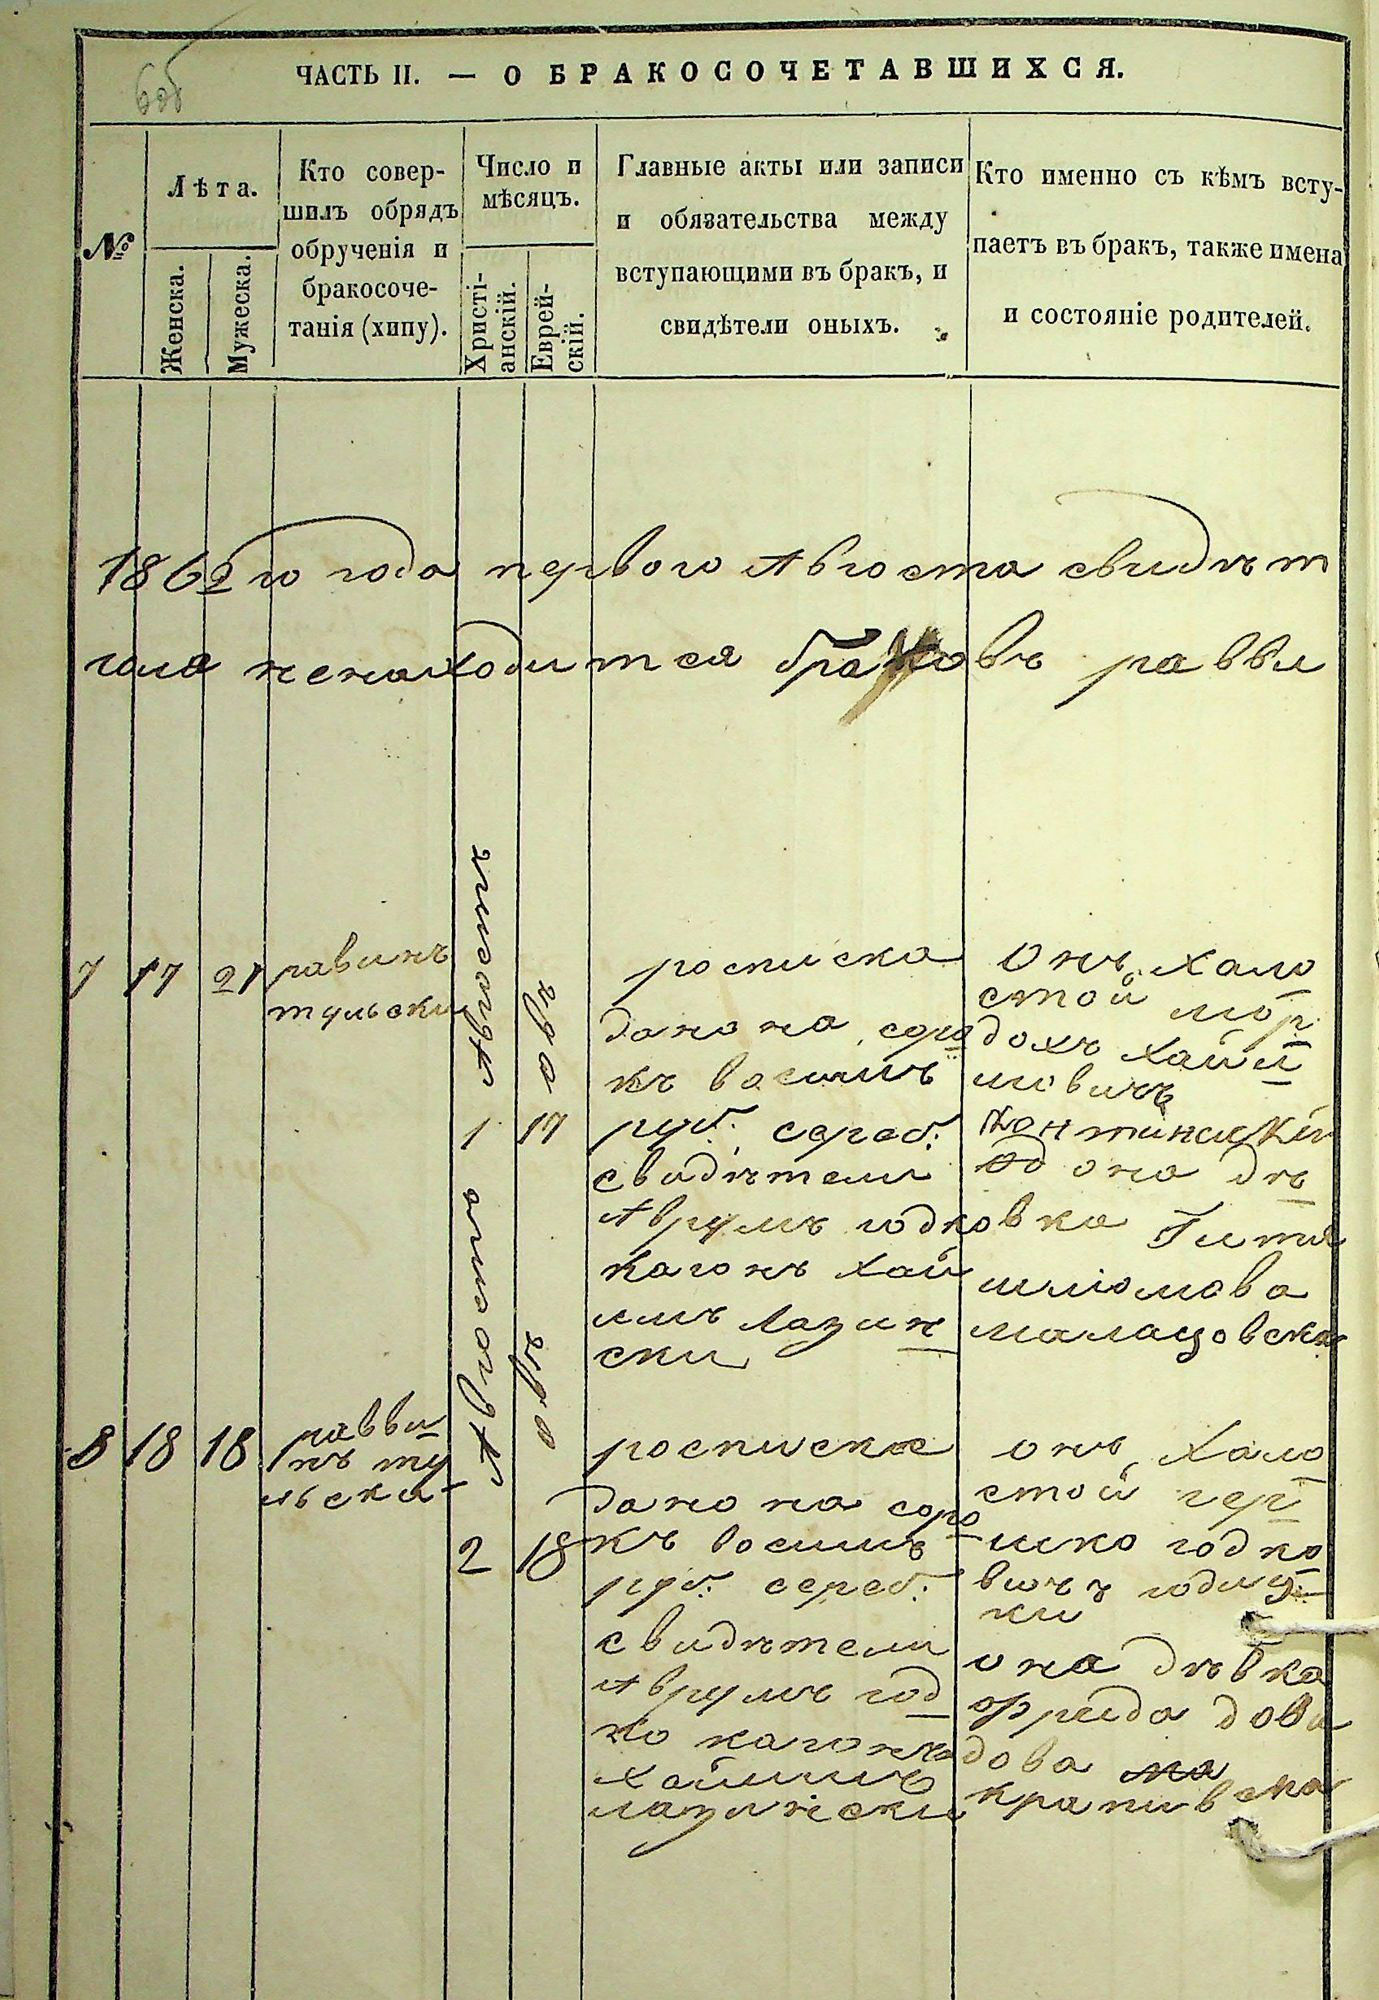 ЧАСТЬ II. — О БРАКОСОЧЕТАВШИХСЯ.
№
Лѣта.
Женска.
Мужеска.
Кто совер-
шилъ обрядъ
обрученія и
бракосоче-
танія (хипу).
Число и
мѣсяцъ.
Христі-
анскій.
Еврей-
скій.
Главные акты или записи
и обязательства между
вступающими въ бракъ, и
свидѣтели оныхъ.
Кто именно съ кѣмъ всту-
паетъ въ бракъ, также имена
и состояніе родителей.
1862го года первого Августа свидѣт
ненаходится браковъ
7
17
21
равинъ
тульски
Августа
1
17
росписка
дано на соро
къ восимъ
руб. сереб.
свидѣтели
Аврумъ годко
кагонъ Хай
имъ Лазин
ски
Онъ Холо
стой мор
дохъ Хаим
мовичъ
она дѣ
вка Гитля
шліомова
8
18
18
равви
нъ ту
льски
Августа
2
18
росписка
дано на соро
къ восимъ
руб. сереб.
свидѣтели
Аврумъ год
ко кагонъ
Хаимъ
лазински
онъ Холо
стой гер
шко годко
вичъ
она дѣвка
фрида дови
дова
крапивска